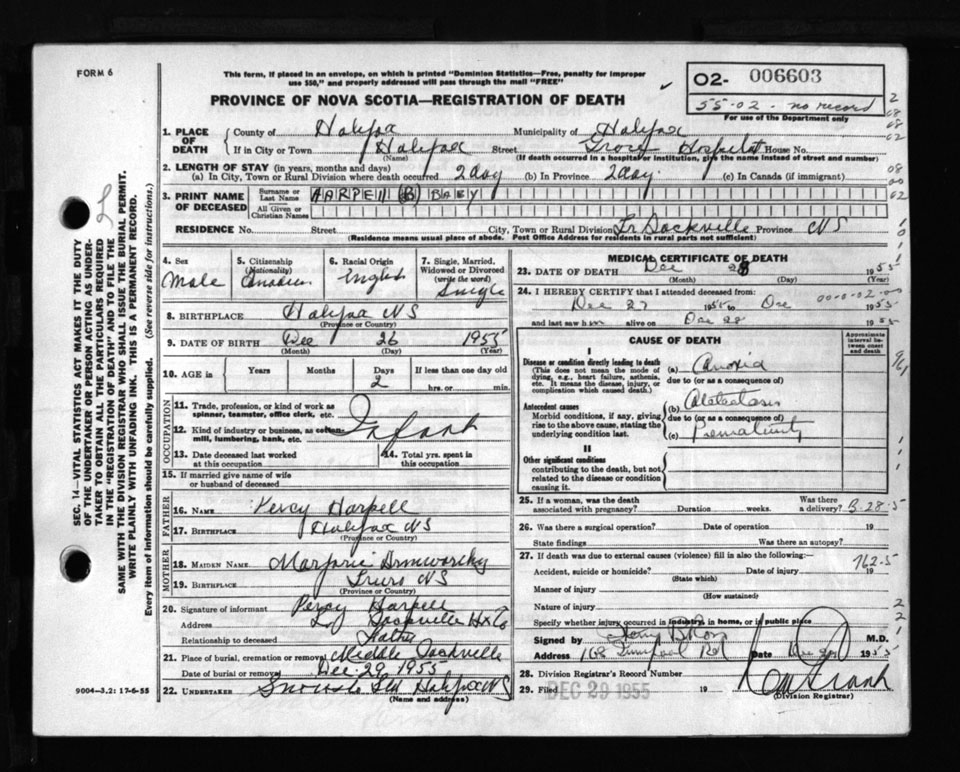 FORM 6
This form, if placed in an envelope, on which is printed "Dominion Statistics—Free, penalty for improper
use $50," and properly addressed will pass through the mail "FREE"
PROVINCE OF NOVA SCOTIA—REGISTRATION OF DEATH
O2- 006603
55-02 - no record
For use of the Department only
1. PLACE OF DEATH
County of Halifax Municipality of Halifax
If in City or Town Halifax Street Grace Hospital House No.
(Name) (If death occurred in a hospital or institution, give the name instead of street and number)
2. LENGTH OF STAY (in years, months and days)
(a) In City, Town or Rural Division where death occurred 2 day (b) In Province 2 day. (c) In Canada (if immigrant)
3. PRINT NAME OF DECEASED
Surname or Last Name HARPELL (B) BABY
All Given or Christian Names
RESIDENCE No. Street City, Town or Rural Division Lr Sackville Province NS
(Residence means usual place of abode. Post Office Address for residents in rural parts not sufficient)
4. Sex Male
5. Citizenship (Nationality) Canadian
6. Racial Origin English
7. Single, Married, Widowed or Divorced (write the word) Single
8. BIRTHPLACE Halifax NS
(Province or Country)
9. DATE OF BIRTH Dec 26 1955
(Month) (Day) (Year)
10. AGE in Years Months Days 2 If less than one day old hrs. or min.
OCCUPATION
11. Trade, profession, or kind of work as spinner, teamster, office clerk, etc.
12. Kind of industry or business, as cotton-mill, lumbering, bank, etc.
Infant
13. Date deceased last worked at this occupation
14. Total yrs. spent in this occupation
15. If married give name of wife or husband of deceased
FATHER
16. NAME Percy Harpell
17. BIRTHPLACE Halifax NS
(Province or Country)
MOTHER
18. MAIDEN NAME Marjorie
19. BIRTHPLACE Truro NS
(Province or Country)
20. Signature of informant Percy Harpell
Address Lr Sackville Hx Co
Relationship to deceased Father
21. Place of burial, cremation or removal Middle Sackville
Date of burial or removal Dec 29 1955
22. UNDERTAKER Halifax NS
(Name and address)
9004—3.2: 17-6-55
SEC. 14—VITAL STATISTICS ACT MAKES IT THE DUTY
OF THE UNDERTAKER OR PERSON ACTING AS UNDER-
TAKER TO OBTAIN ALL THE PARTICULARS REQUIRED
IN THE "REGISTRATION OF DEATH" AND TO FILE THE
SAME WITH THE DIVISION REGISTRAR WHO SHALL ISSUE THE BURIAL PERMIT.
WRITE PLAINLY WITH UNFADING INK. THIS IS A PERMANENT RECORD.
Every item of information should be carefully supplied. (See reverse side for instructions.)
MEDICAL CERTIFICATE OF DEATH
23. DATE OF DEATH Dec 28 1955
(Month) (Day) (Year)
24. I HEREBY CERTIFY that I attended deceased from:
Dec 27 1955 to Dec 1955
and last saw him alive on Dec 28 1955
CAUSE OF DEATH
Approximate interval between onset and death
I
Disease or condition directly leading to death
(This does not mean the mode of dying, e.g., heart failure, asthenia, etc. It means the disease, injury, or complication which caused death.)
(a) Anoxia
due to (or as a consequence of)
Antecedent causes
Morbid conditions, if any, giving rise to the above cause, stating the underlying condition last.
(b) Atelectasis
due to (or as a consequence of)
(c) Prematurity
II
Other significant conditions
contributing to the death, but not related to the disease or condition causing it.
25. If a woman, was the death associated with pregnancy? Duration weeks. Was there a delivery? B-28-5
26. Was there a surgical operation? Date of operation 19
State findings Was there an autopsy?
27. If death was due to external causes (violence) fill in also the following:—
762-5
Accident, suicide or homicide? Date of injury 19
(State which)
Manner of injury
(How sustained)
Nature of injury
Specify whether injury occurred in industry, in home, or in public place
Signed by M.D.
Address 168 Rd Date Dec 1955
28. Division Registrar's Record Number
29. Filed DEC 29 1955 19
(Division Registrar)